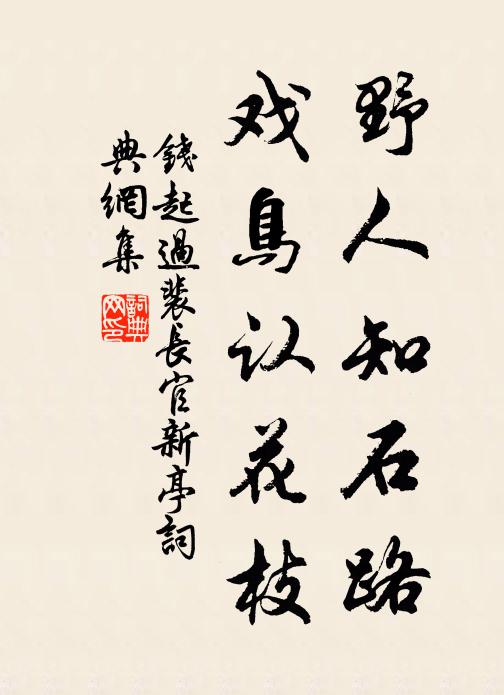 野人知石路
戏鸟认花枝
錢起過裴長官新亭詞
典網集
詞典網印